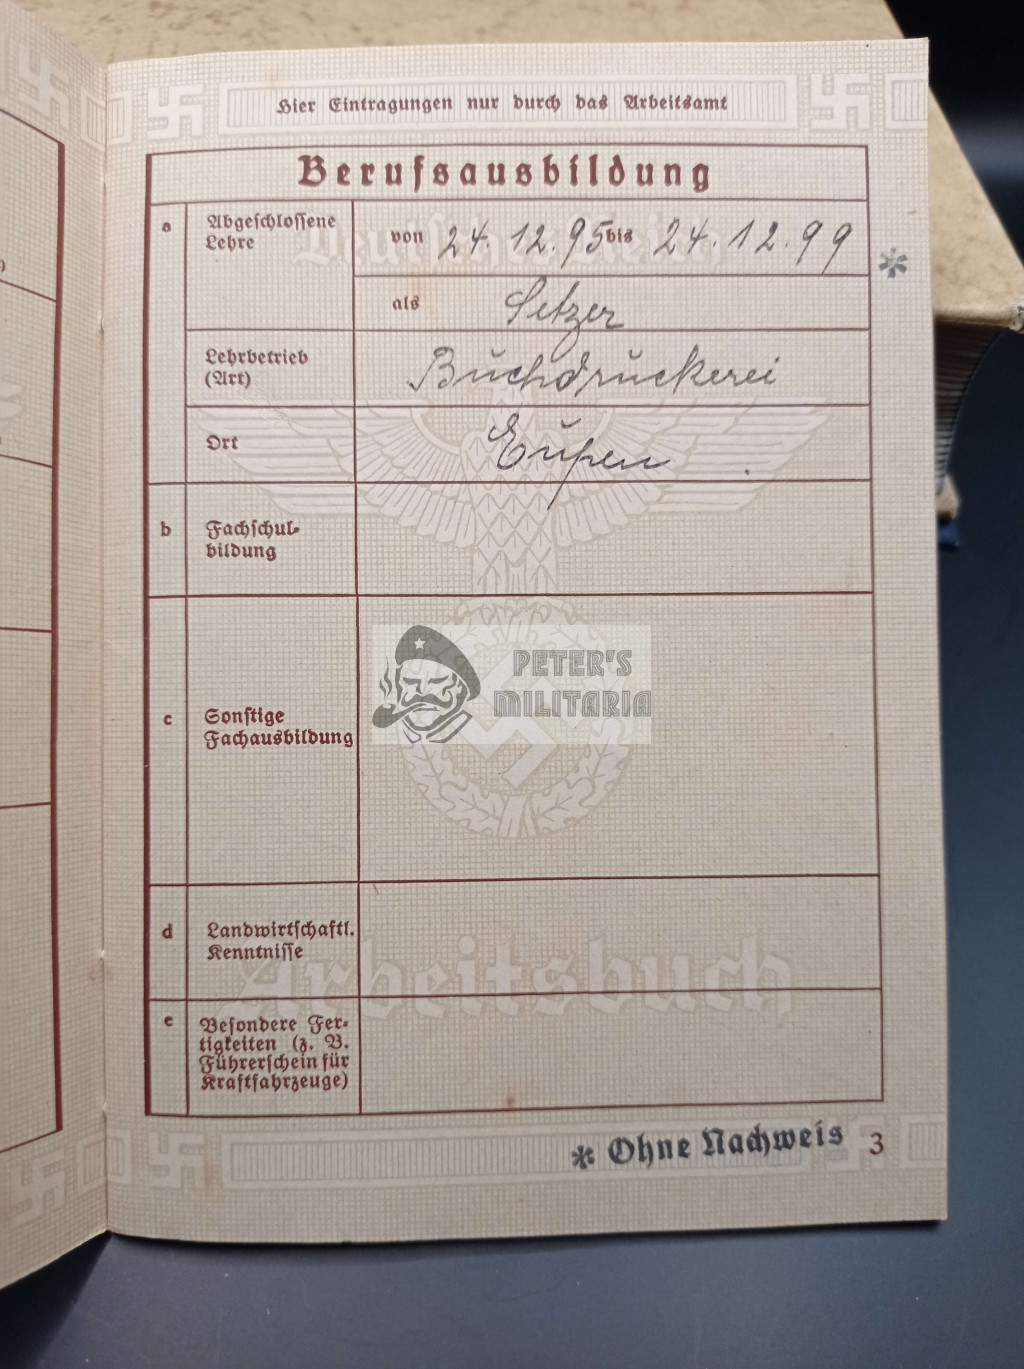 Hier Eintragungen nur durch das Arbeitsamt
Berufsausbildung
a Abgeschlossene Lehre
von 24.12.95 bis 24.12.99 *
als Setzer
Lehrbetrieb (Art) Buchdruckerei
Ort Eupen
b Fachschul-
bildung
PETER'S
MILITARIA
c Sonstige
Fachausbildung
d Landwirtschaftl.
Kenntnisse
Deutsches Reich
Arbeitsbuch
e Besondere Fer-
tigkeiten (z. B.
Führerschein für
Kraftfahrzeuge)
* Ohne Nachweis 3